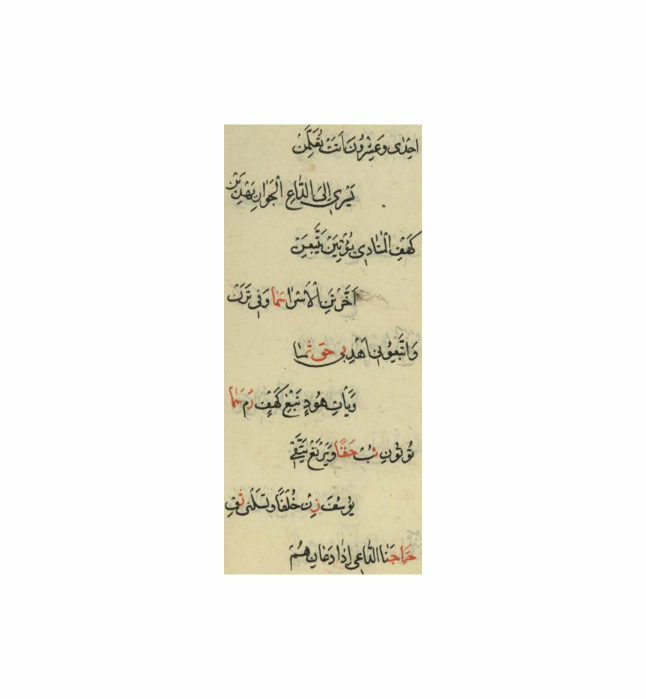 احدى وعشرون اتت تعلمن
يسري الى الداع الجوار يهدين
كهف المنادي يؤتين تتبعن
اخرتن الاسرا سما وفي ترن
واتبعون اهدبي حق ثما
ويات هود نبغ كهف رم سما
تؤتون ثب حقا ويرتع يتقي
يوسف زن خلفا وتسلني ثق
حما جنا الداعي اذا دعان هم